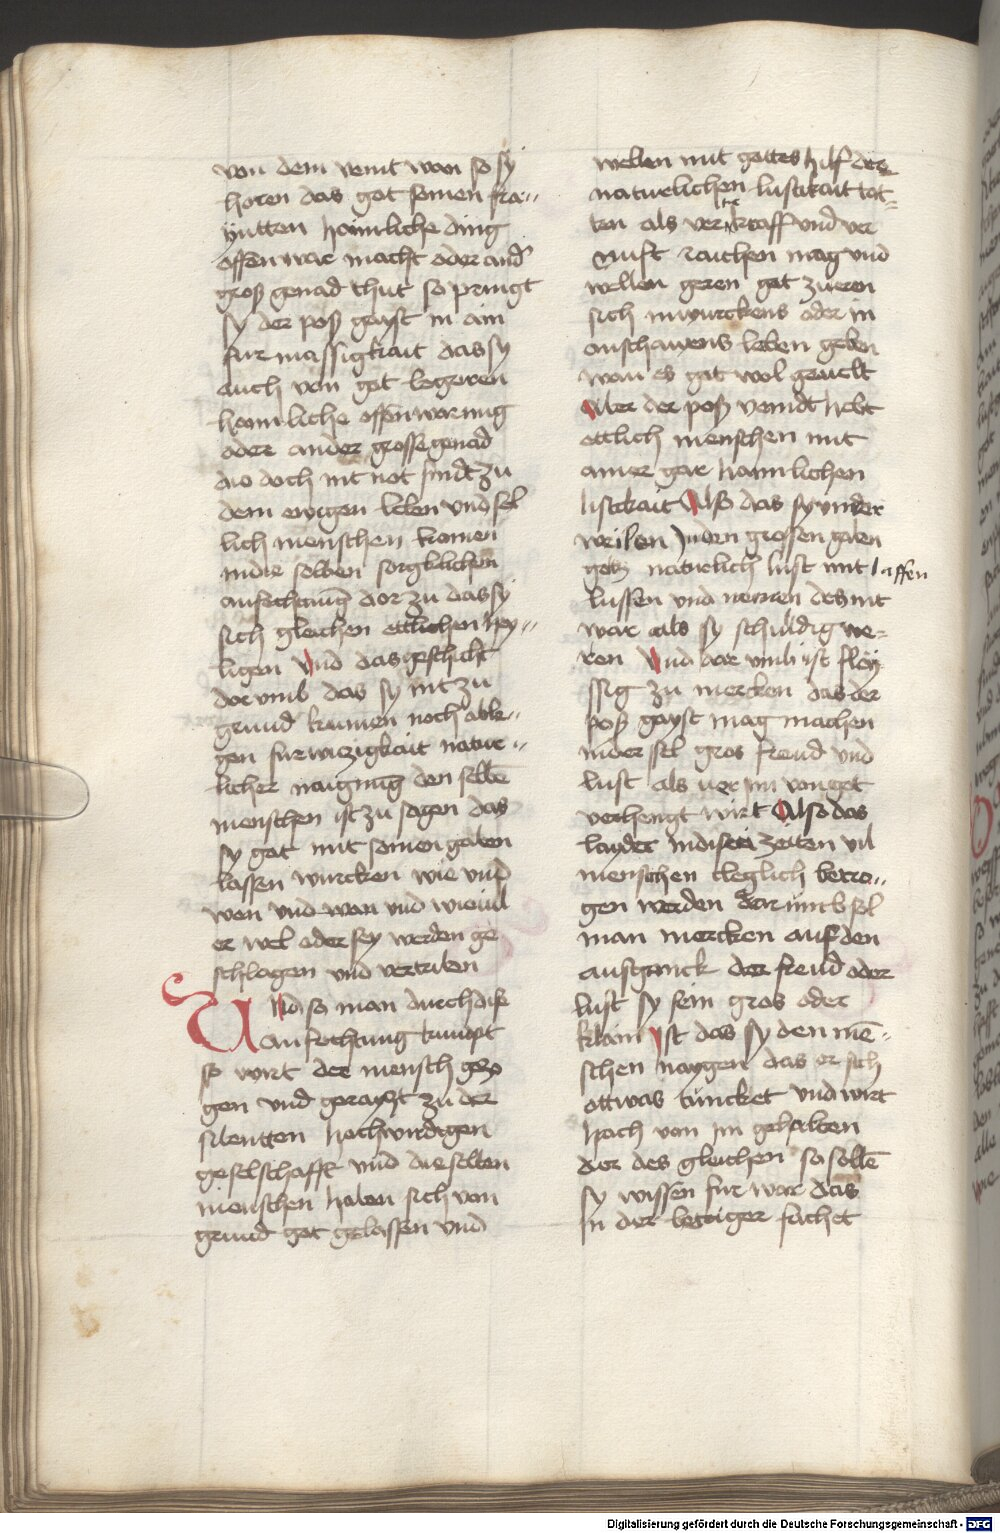 von dem veint wan so sy
horen das got seinen fra„
yntten haimliche ding
offenwar macht oder and'
groß genad thut so pringt
sy der poß gayst in ain
furmassigkait das sy
auch von got begeren
haimliche offenwarung
oder ander grosse genad
die doch nit not sindt zu
dem ewigen leben und sol
lich menschen komen
in die selben sorgklichen
anfechtung dor zu das sy
sich gleichen ettlichen hey„
ligen Und das geschicht
dorumb das sy nit zu
grund kumen noch able„
gen furwizigkait natur„
licher naigung den selbē
menschen ist zu sagen das
sy got mit seinen gaben
lassen wurcken wie und
wen und wan und wieuil
er wel oder sey werden ge
schlagen und vertriben
Und so man durch dise
anfechtung kumpt
so wirt der mensch gezo
gen und gerayzt zu der
sibentten hochwirdigen
geselschafft und die selben
menschen haben sich von
grund got gelassen und
wellen mit gottes hilf der
naturlichen lustikait tot=
ten als verr ir kraff und ver
nuft raichen mag und
wellen geren got zu eren
sich in wurckens oder in
anschauens leben geben
wan es got wol geuelt
Aber der poß veindt hebt
ettlich menschen mit
ainer gar haimlichen
listikait Also das sy under
weilen in den grossen gaben
gotz naturlich lust mit laffen
lussen und nemen des nit
war als sy schuldig we=
ren Und dar umb ist fley
ssig zu mercken das der
poß gayst mag machen
in der sel gros freud und
lust als uer im von got
verhengt wirt Also das
layder in disen zeiten vil
menschen cleglich betro„
gen werden Dar umb sol
man mercken auf den
ausganck der freud oder
lust sy sein gros oder
klain Ist das sy den mē„
schen naygen das er sich
ettwas tuncket und wirt
hoch von im gehalben
der des gleichen so sollē
sy wissen fur war das
in der betriger suchet
Digitalisierung gefördert durch die Deutsche Forschungsgemeinschaft - DFG